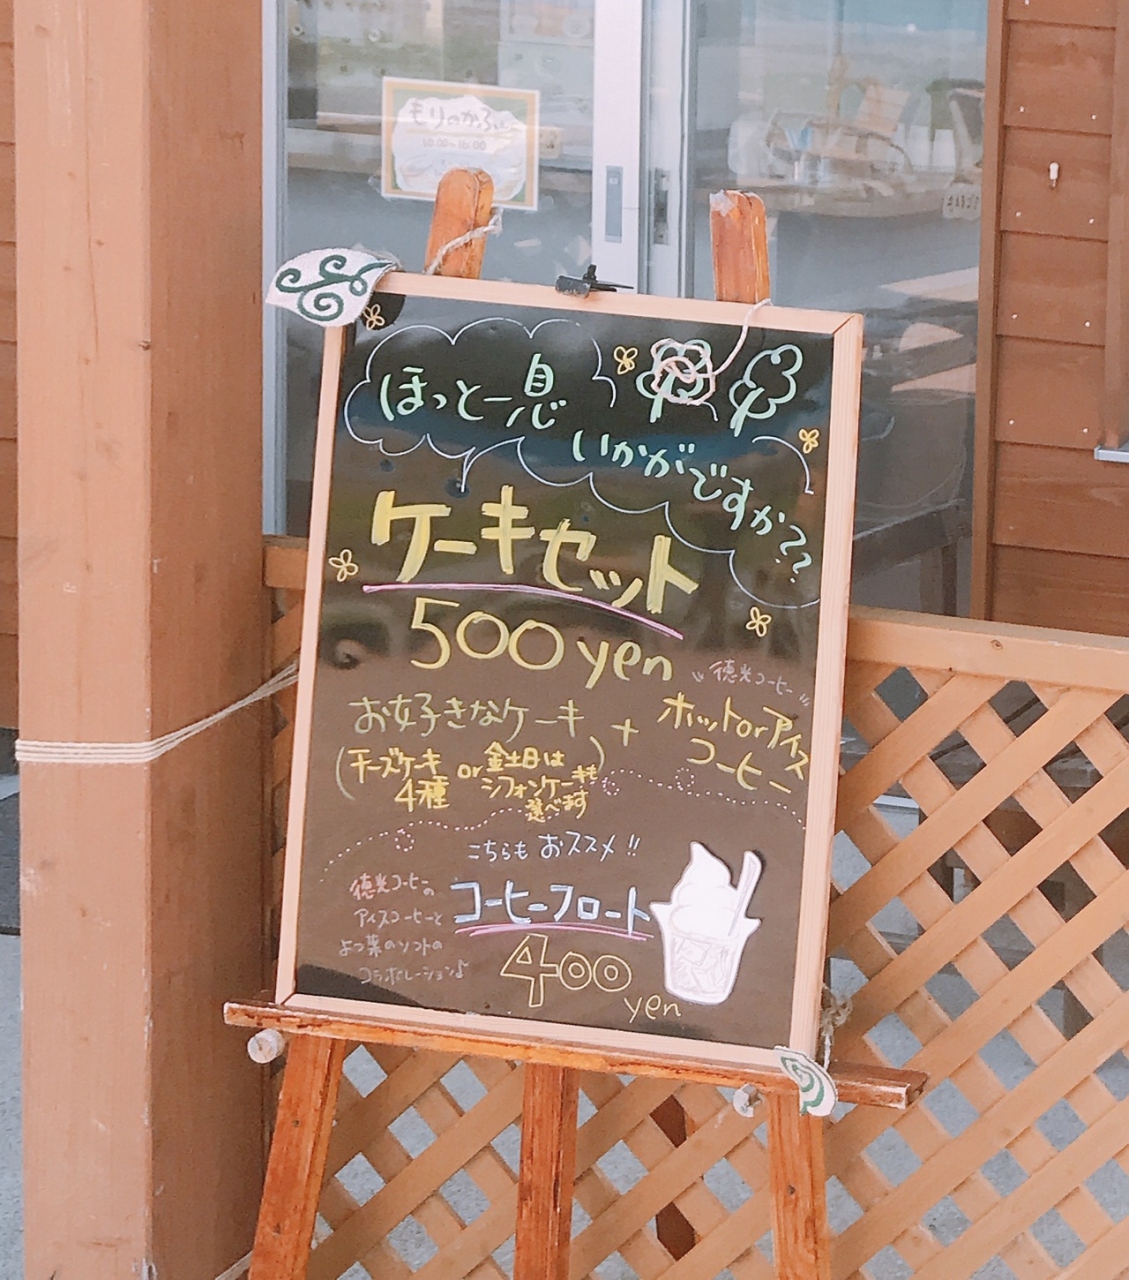 もりのかふぇ
10:00~16:00
ほっと一息
いかがですか??
ケーキセット
500yen
お好きなケーキ
(チーズケーキ
4種
or
金土日は
シフォンケーキも
選べます)
+
徳光コーヒー
ホットorアイス
コーヒー
こちらもおススメ!!
徳光コーヒーの
アイスコーヒーと
よつ葉のソフトの
コラボレーション♪
コーヒーフロート
400
yen